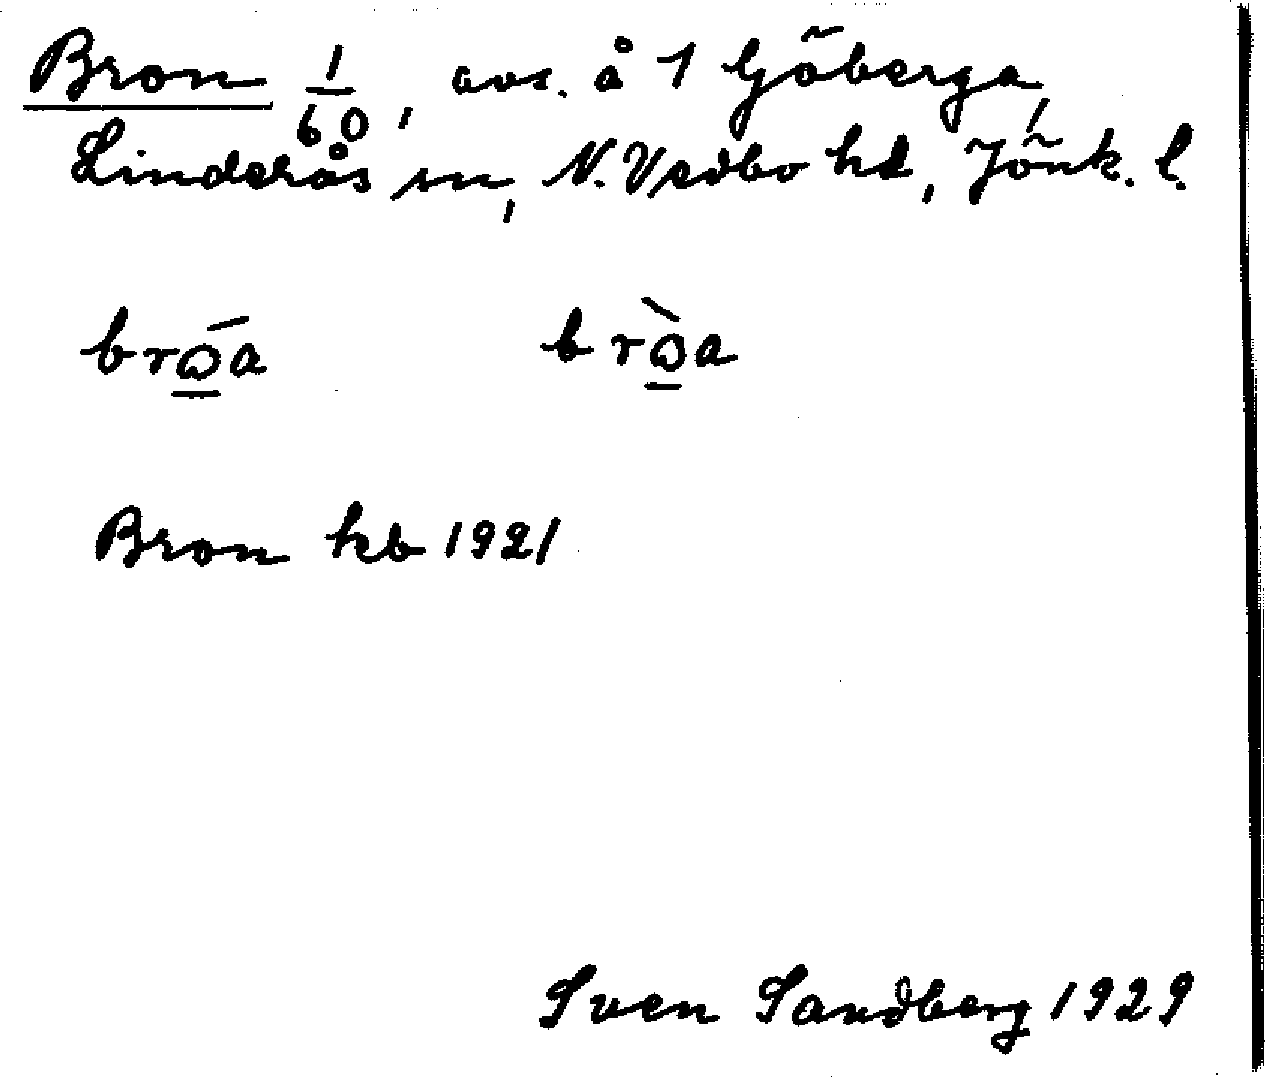 Bron 1/60, avs. å 1 Göberga,
Linderås sn, N. Vedbo hd, Jönk. l.
bró̲a brò̲a
Bron kb 1921
Sven Sandberg 1929